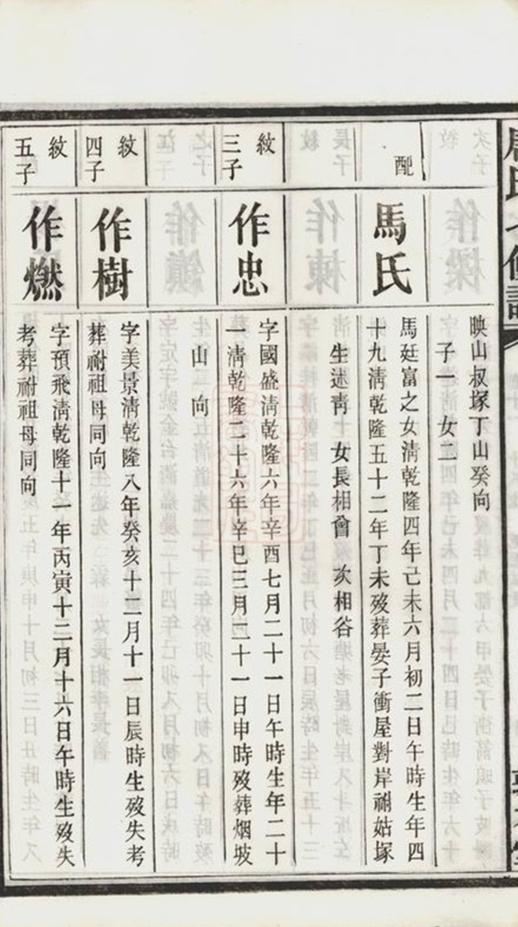 映山叔塚丁山癸向
子一 女一
配
馬氏
馬廷富之女清乾隆四年己未六月初二日午時生年四
十九清乾隆五十二年丁未歿葬晏子衝屋對岸祔姑塚
生述靑 女長相會 次相谷
紋
三子
作忠
字國盛清乾隆六年辛酉七月二十一日午時生年二十
一清乾隆二十六年辛巳三月二十一日申時歿葬烟坡
山 向
紋
四子
作樹
字美景清乾隆八年癸亥十二月十一日辰時生歿失考
葬祔祖母同向
紋
五子
作燃
字預飛清乾隆十一年丙寅十二月十六日午時生歿失
考葬祔祖母同向